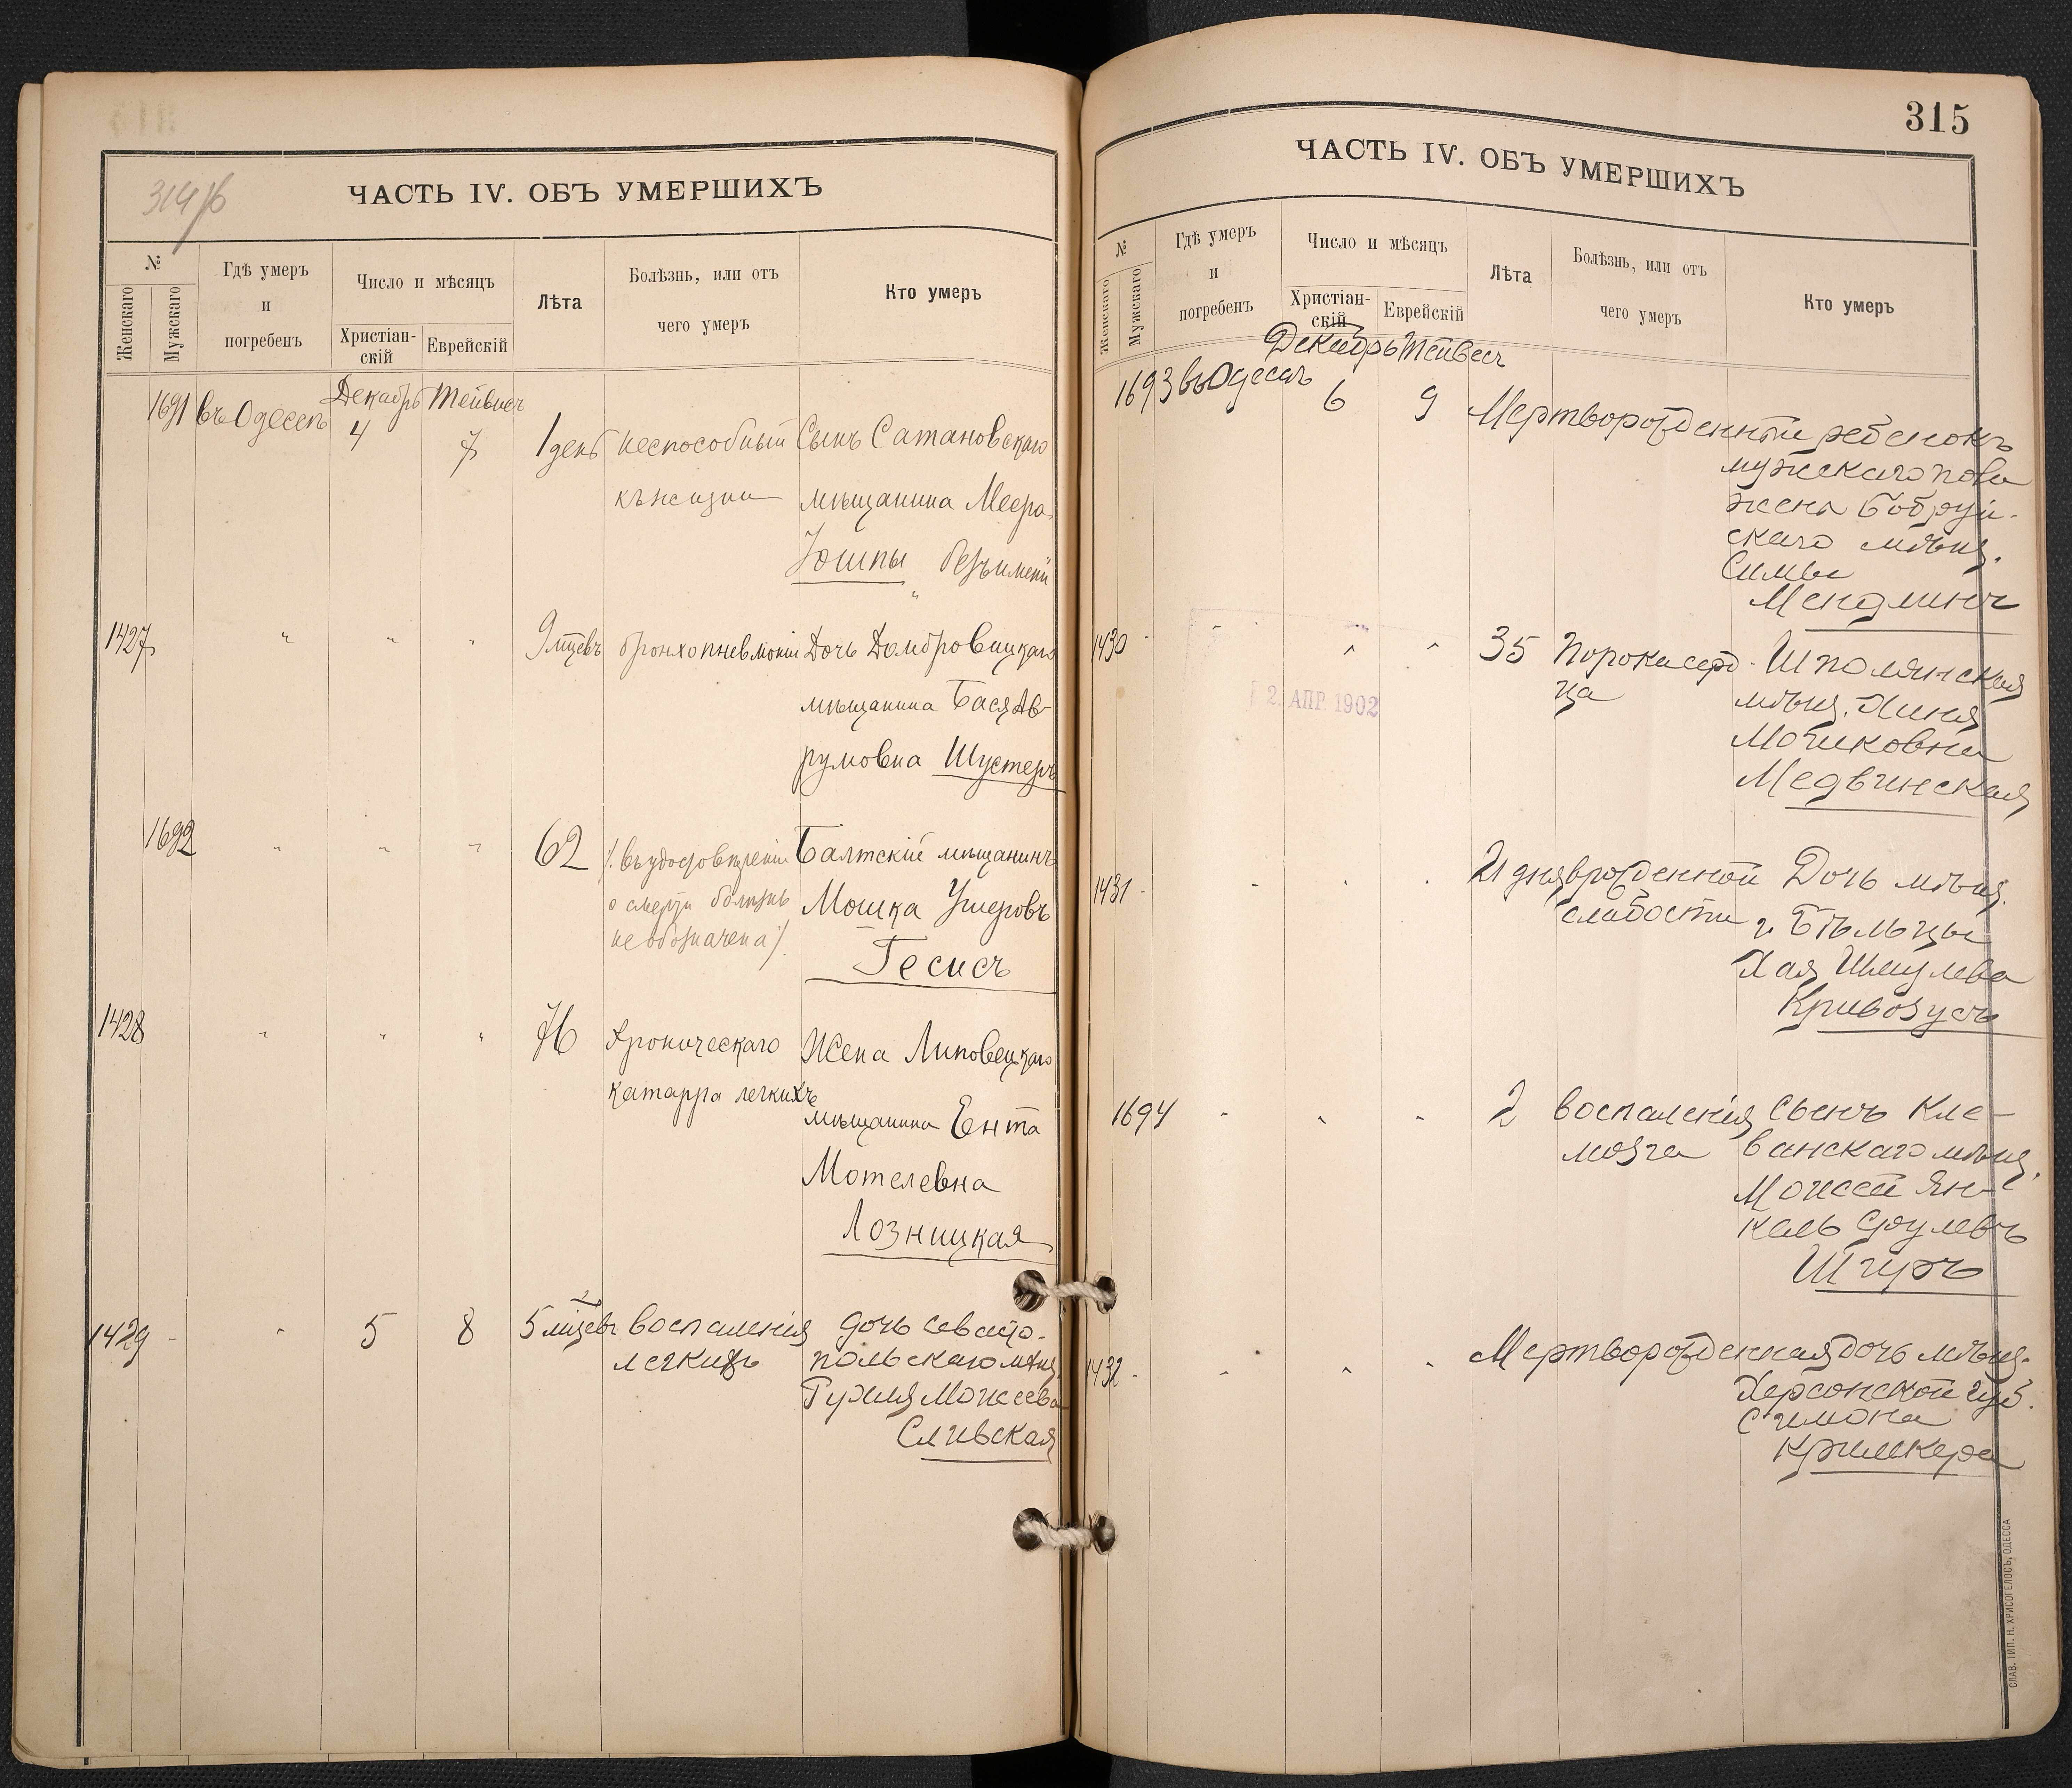 314/б
ЧАСТЬ IV. ОБЪ УМЕРШИХЪ
№
Женскаго
Мужскаго
Гдѣ умеръ
и
погребенъ
Число и мѣсяцъ
Христіан-
скій
Еврейскій
Лѣта
Болѣзнь, или отъ
чего умеръ
Кто умеръ
1691 въ Одессѣ Декабрь 4 Тейвесъ 7 1 день неспособный Сынъ Сатановскаго
къ жизни мѣщанина Меера
Іошпы безъимени
1427 " " " 9 мцевъ бронхопневмоніи Дочь Домбровицкаго
мѣщанина Бася Ав-
румовна Шустеръ
1692 " " " 62 /. въ удостовѣреніи Балтскій мѣщанинъ
о смерти болѣзнь Мошка Ушеровъ
не обозначена ./ Гесисъ
1428 " " " 76 Хроническаго Жена Липовецкаго
катарра легкихъ мѣщанина Ента
Мотелевна
Лозницкая
1429 - " 5 8 5 мцевъ воспаленія дочь Севасто-
легкихъ польскаго мѣщ.
Рухля Моисеева
Сливская
315
ЧАСТЬ IV. ОБЪ УМЕРШИХЪ
№
Женскаго
Мужскаго
Гдѣ умеръ
и
погребенъ
Число и мѣсяцъ
Христіан-
скій
Еврейскій
Лѣта
Болѣзнь, или отъ
чего умеръ
Кто умеръ
Декабрь Тейвесъ
1693 въ Одессѣ 6 9 Мертворожденный ребенокъ
мужескаго пола
жены Бобруй-
скаго мѣщ.
Симы
Мендлинъ
1430 - " " " 35 Порока серд- Шполянская
ца мѣщ. Хиня
Мошковна
Медвинская
2 АПР. 1902
1431 - " " " 21 дня врожденной Дочь мѣщ.
слабости г. Бѣльцы
Хая Шмулева
Кривозусъ
1694 " " " 2 воспаленія Сынъ Кле-
мозга ванскаго мѣщ.
Моисей Ян-
кель Срулевъ
Шгуръ
1432 - " " " Мертворожденная дочь мѣщ.
Херсонской губ.
Симона
Кримкера
СЛАВ. ТИП. Н. ХРИСОГЕЛОСЪ, ОДЕССА